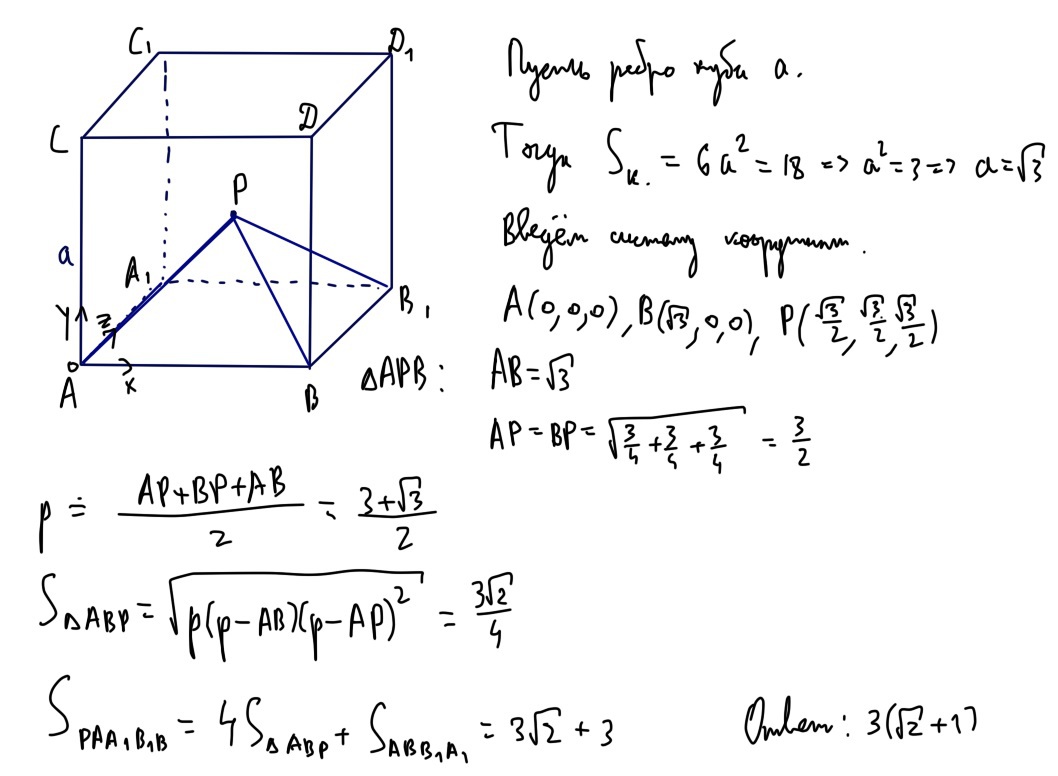 C₁ D₁
C D
P
a
A₁
B₁
Y Z
A x B
Пусть ребро куба a.
Тогда Sк. = 6a² = 18 => a² = 3 => a = √3
Введём систему координат.
A(0, 0, 0), B(√3, 0, 0), P(√3/2, √3/2, √3/2)
△APB: AB = √3
AP = BP = √(3/4 + 3/4 + 3/4) = 3/2
p = (AP + BP + AB)/2 = (3 + √3)/2
S△ABP = √(p(p − AB)(p − AP)²) = 3√2/4
SPAA₁B₁B = 4S△ABP + SABB₁A₁ = 3√2 + 3
Ответ: 3(√2 + 1)